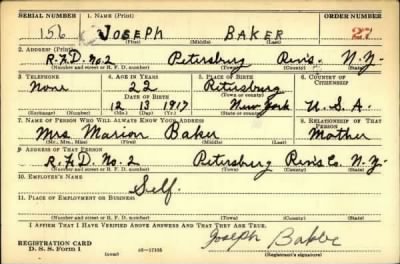 SERIAL NUMBER 1. NAME (Print) ORDER NUMBER
156 JOSEPH BAKER 27
(First) (Middle) (Last)
2. ADDRESS (Print)
R.F.D. No. 2 Petersburg Rens. N.Y.
(Number and street or R. F. D. number) (Town) (County) (State)
3. TELEPHONE 4. AGE IN YEARS 5. PLACE OF BIRTH 6. COUNTRY OF CITIZENSHIP
None 22 Petersburg
DATE OF BIRTH (Town or county)
12 13 1917 New York U.S.A.
(Exchange) (Number) (Mo.) (Day) (Yr.) (State or country)
7. NAME OF PERSON WHO WILL ALWAYS KNOW YOUR ADDRESS 8. RELATIONSHIP OF THAT PERSON
Mrs Marion Baker Mother
(Mr., Mrs., Miss) (First) (Middle) (Last)
9. ADDRESS OF THAT PERSON
R.F.D. No. 2 Petersburg Rens Co. N.Y.
(Number and street or R. F. D. number) (Town) (County) (State)
10. EMPLOYER'S NAME
Self.
11. PLACE OF EMPLOYMENT OR BUSINESS
(Number and street or R. F. D. number) (Town) (County) (State)
I AFFIRM THAT I HAVE VERIFIED ABOVE ANSWERS AND THAT THEY ARE TRUE.
REGISTRATION CARD
D. S. S. Form 1 16-17105 Joseph
(Registrant's signature)